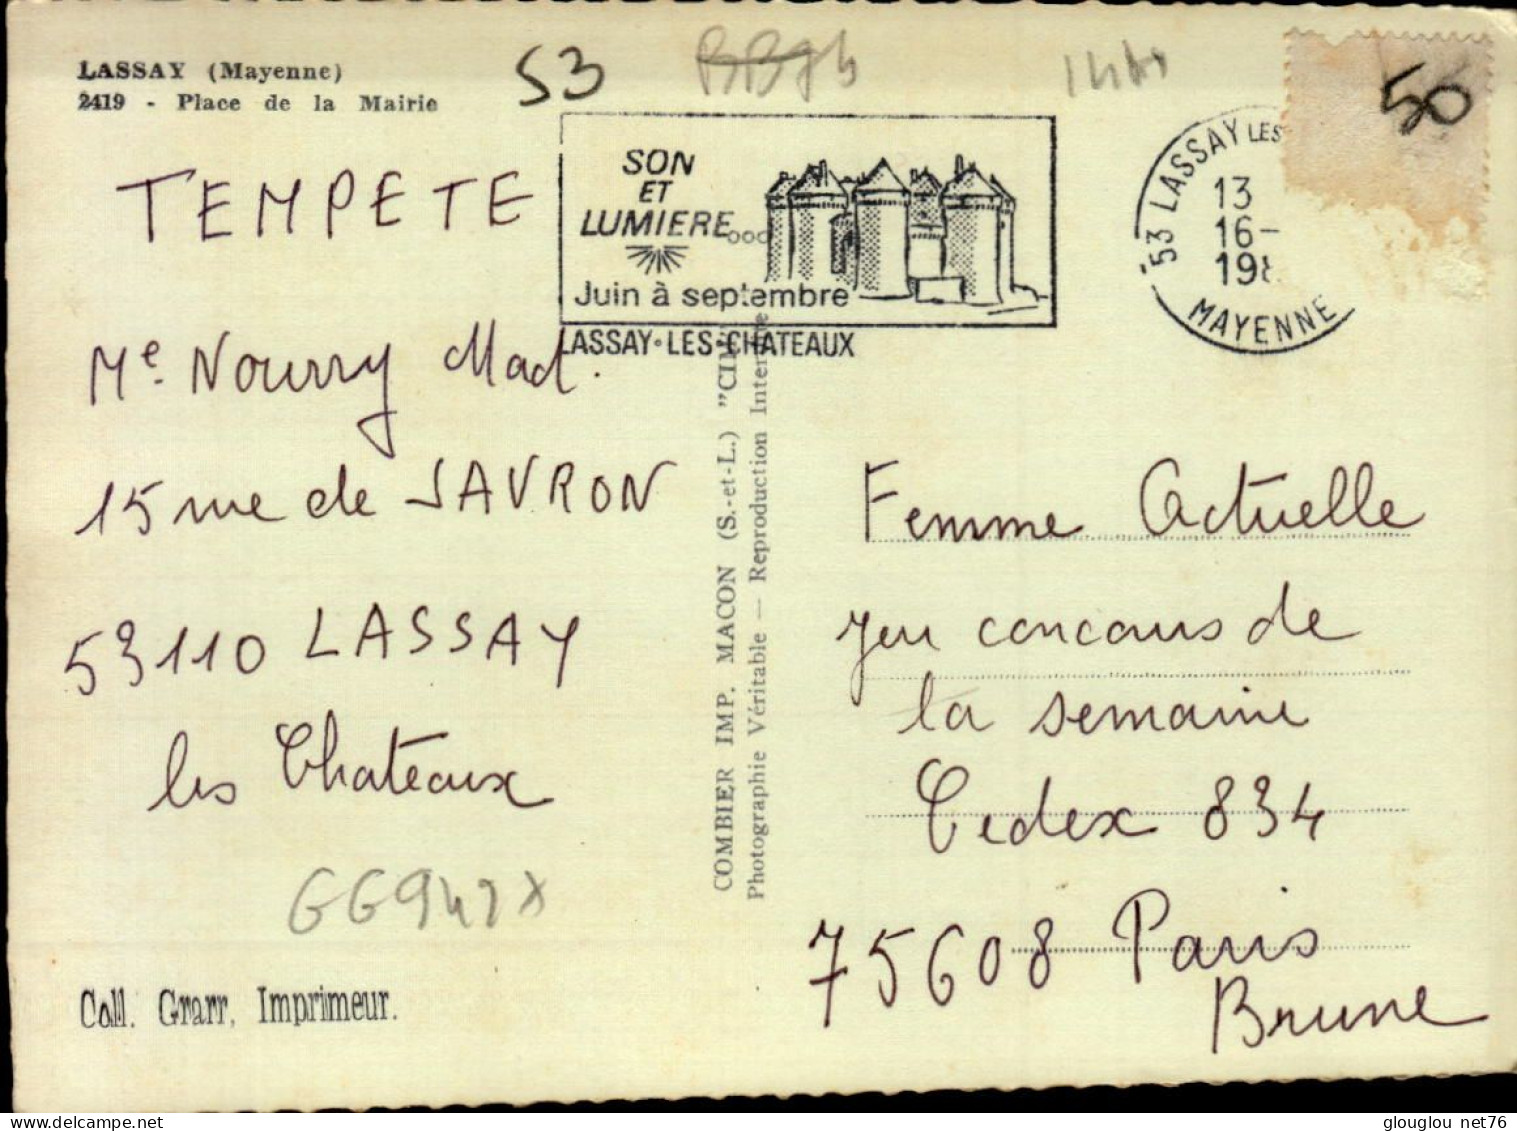 LASSAY (Mayenne)
2419 - Place de la Mairie
53
50
SON
ET
LUMIERE...
Juin à septembre
LASSAY·LES·CHATEAUX
53 LASSAY LES
13
16-
198
MAYENNE
TEMPETE
Me. Nourry Mad.
15 rue de JAVRON
53110 LASSAY
les Chateaux
GG942x
Coll. Grarr, Imprimeur.
COMBIER IMP. MACON (S.-et-L.) "CIM"
Photographie Véritable — Reproduction Inter
Femme Actuelle
Jeu concours de
la semaine
Cedex 834
75608 Paris
Brune
glouglou net76